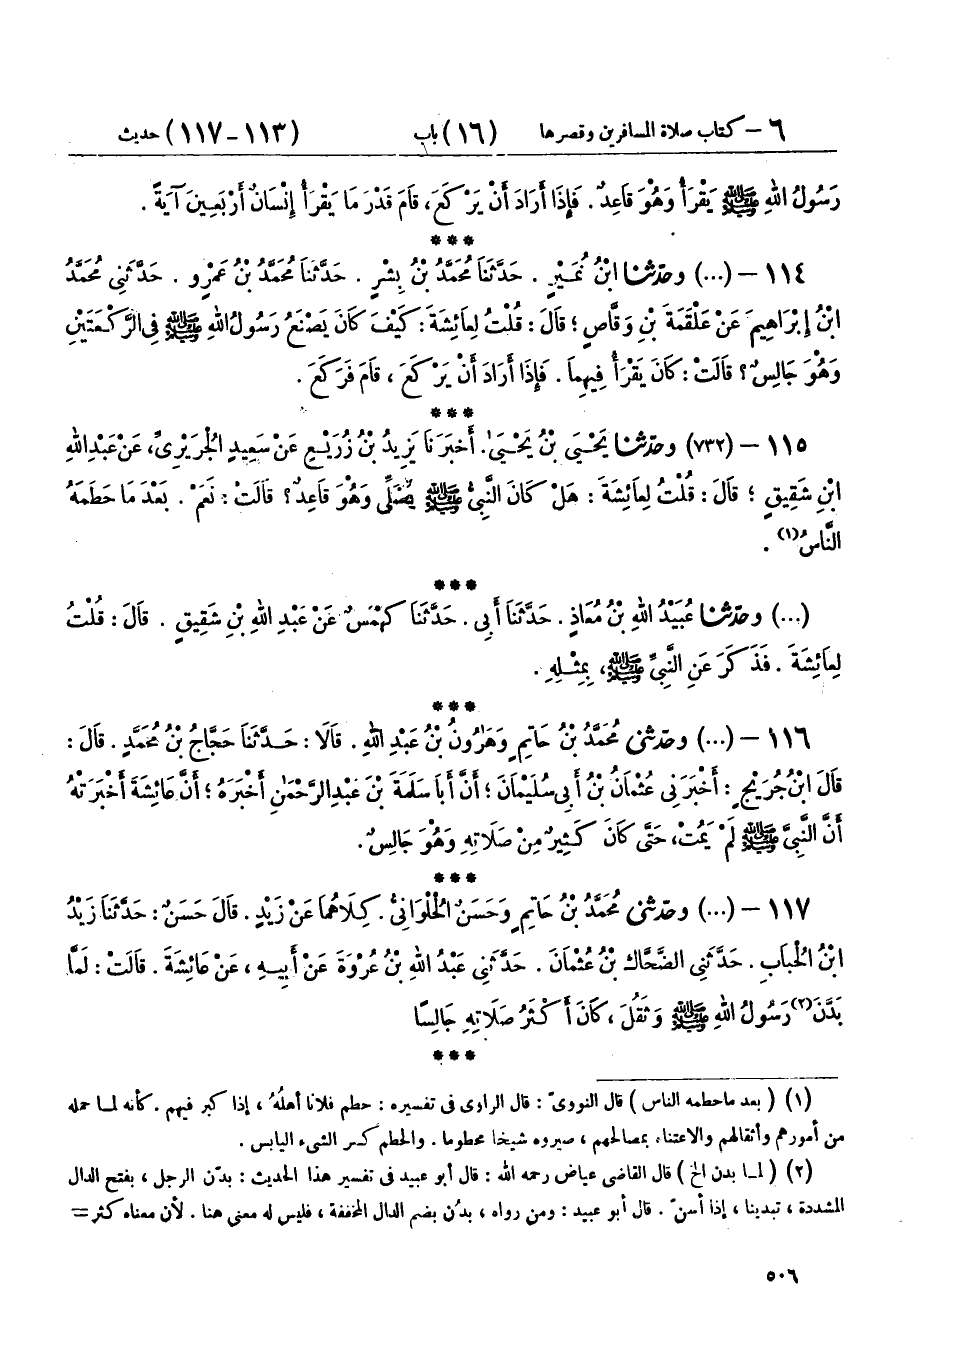 ٦ – كتاب صلاة المسافرين وقصرها (١٦) باب (١١٣–١١٧) حديث
رَسُولُ اللهِ ﷺ يَقْرَأُ وَهُوَ قَاعِدٌ . فَإِذَا أَرَادَ أَنْ يَرْكَعَ، قَامَ قَدْرَ مَا يَقْرَأُ إِنْسَانٌ أَرْبَعِينَ آيَةً .
***
١١٤ – (...) وحدّثنا ابْنُ نُمَيْرٍ . حَدَّثَنَا مُحَمَّدُ بْنُ بِشْرٍ . حَدَّثَنَا مُحَمَّدُ بْنُ عَمْرٍو . حَدَّثَنِي مُحَمَّدُ
ابْنُ إِبْرَاهِيمَ عَنْ عَلْقَمَةَ بْنِ وَقَّاصٍ ؛ قَالَ : قُلْتُ لِعَائِشَةَ : كَيْفَ كَانَ يَصْنَعُ رَسُولُ اللهِ ﷺ فِي الرَّكْعَتَيْنِ
وَهُوَ جَالِسٌ ؟ قَالَتْ : كَانَ يَقْرَأُ فِيهِمَا . فَإِذَا أَرَادَ أَنْ يَرْكَعَ ، قَامَ فَرَكَعَ .
***
١١٥ – (٧٣٢) وحدّثنا يَحْيَى بْنُ يَحْيَى. أَخْبَرَنَا يَزِيدُ بْنُ زُرَيْعٍ عَنْ سَعِيدٍ الْجَرَيْرِيِّ، عَنْ عَبْدِ اللهِ
ابْنِ شَقِيقٍ ؛ قَالَ : قُلْتُ لِعَائِشَةَ : هَلْ كَانَ النَّبِيُّ ﷺ يُصَلِّي وَهُوَ قَاعِدٌ ؟ قَالَتْ : نَعَمْ . بَعْدَ مَا حَطَمَهُ
النَّاسُ(١) .
***
(...) وحدّثنا عُبَيْدُ اللهِ بْنُ مُعَاذٍ . حَدَّثَنَا أَبِي . حَدَّثَنَا كَهْمَسٌ عَنْ عَبْدِ اللهِ بْنِ شَقِيقٍ . قَالَ : قُلْتُ
لِعَائِشَةَ . فَذَكَرَ عَنِ النَّبِيِّ ﷺ، بِمِثْلِهِ .
***
١١٦ – (...) وحدّثني مُحَمَّدُ بْنُ حَاتِمٍ وَهَارُونُ بْنُ عَبْدِ اللهِ . قَالَا : حَدَّثَنَا حَجَّاجُ بْنُ مُحَمَّدٍ . قَالَ :
قَالَ ابْنُ جُرَيْجٍ : أَخْبَرَنِي عُثْمَانُ بْنُ أَبِي سُلَيْمَانَ ؛ أَنَّ أَبَا سَلَمَةَ بْنَ عَبْدِ الرَّحْمٰنِ أَخْبَرَهُ ؛ أَنَّ عَائِشَةَ أَخْبَرَتْهُ
أَنَّ النَّبِيَّ ﷺ لَمْ يَمُتْ، حَتَّى كَانَ كَثِيرٌ مِنْ صَلَاتِهِ وَهُوَ جَالِسٌ .
***
١١٧ – (...) وحدّثني مُحَمَّدُ بْنُ حَاتِمٍ وَحَسَنٌ الْحُلْوَانِيُّ . كِلَاهُمَا عَنْ زَيْدٍ . قَالَ حَسَنٌ : حَدَّثَنَا زَيْدُ
ابْنُ الْحُبَابِ . حَدَّثَنِي الضَّحَّاكُ بْنُ عُثْمَانَ . حَدَّثَنِي عَبْدُ اللهِ بْنُ عُرْوَةَ عَنْ أَبِيهِ ، عَنْ عَائِشَةَ . قَالَتْ : لَمَّا
بَدَّنَ(٢) رَسُولُ اللهِ ﷺ وَثَقُلَ ، كَانَ أَكْثَرُ صَلَاتِهِ جَالِسًا
***
(١) ( بعد ما حطمه الناس ) قال النوويّ : قال الراوي في تفسيره : حطم فلانا أهلُه ، إذا كبر فيهم . كأنه لما حمله
من أمورهم وأثقالهم والاعتناء بمصالحهم ، صيروه شيخا محطوما . والحطم كسر الشيء اليابس .
(٢) ( لما بدن الخ ) قال القاضي عياض رحمه الله : قال أبو عبيد في تفسير هذا الحديث : بدّن الرجل ، بفتح الدال
المشددة ، تبدينا ، إذا أسنّ . قال أبو عبيد : ومن رواه ، بدُن بضم الدال المخففة ، فليس له معنى هنا . لأن معناه كثر =
٥٠٦